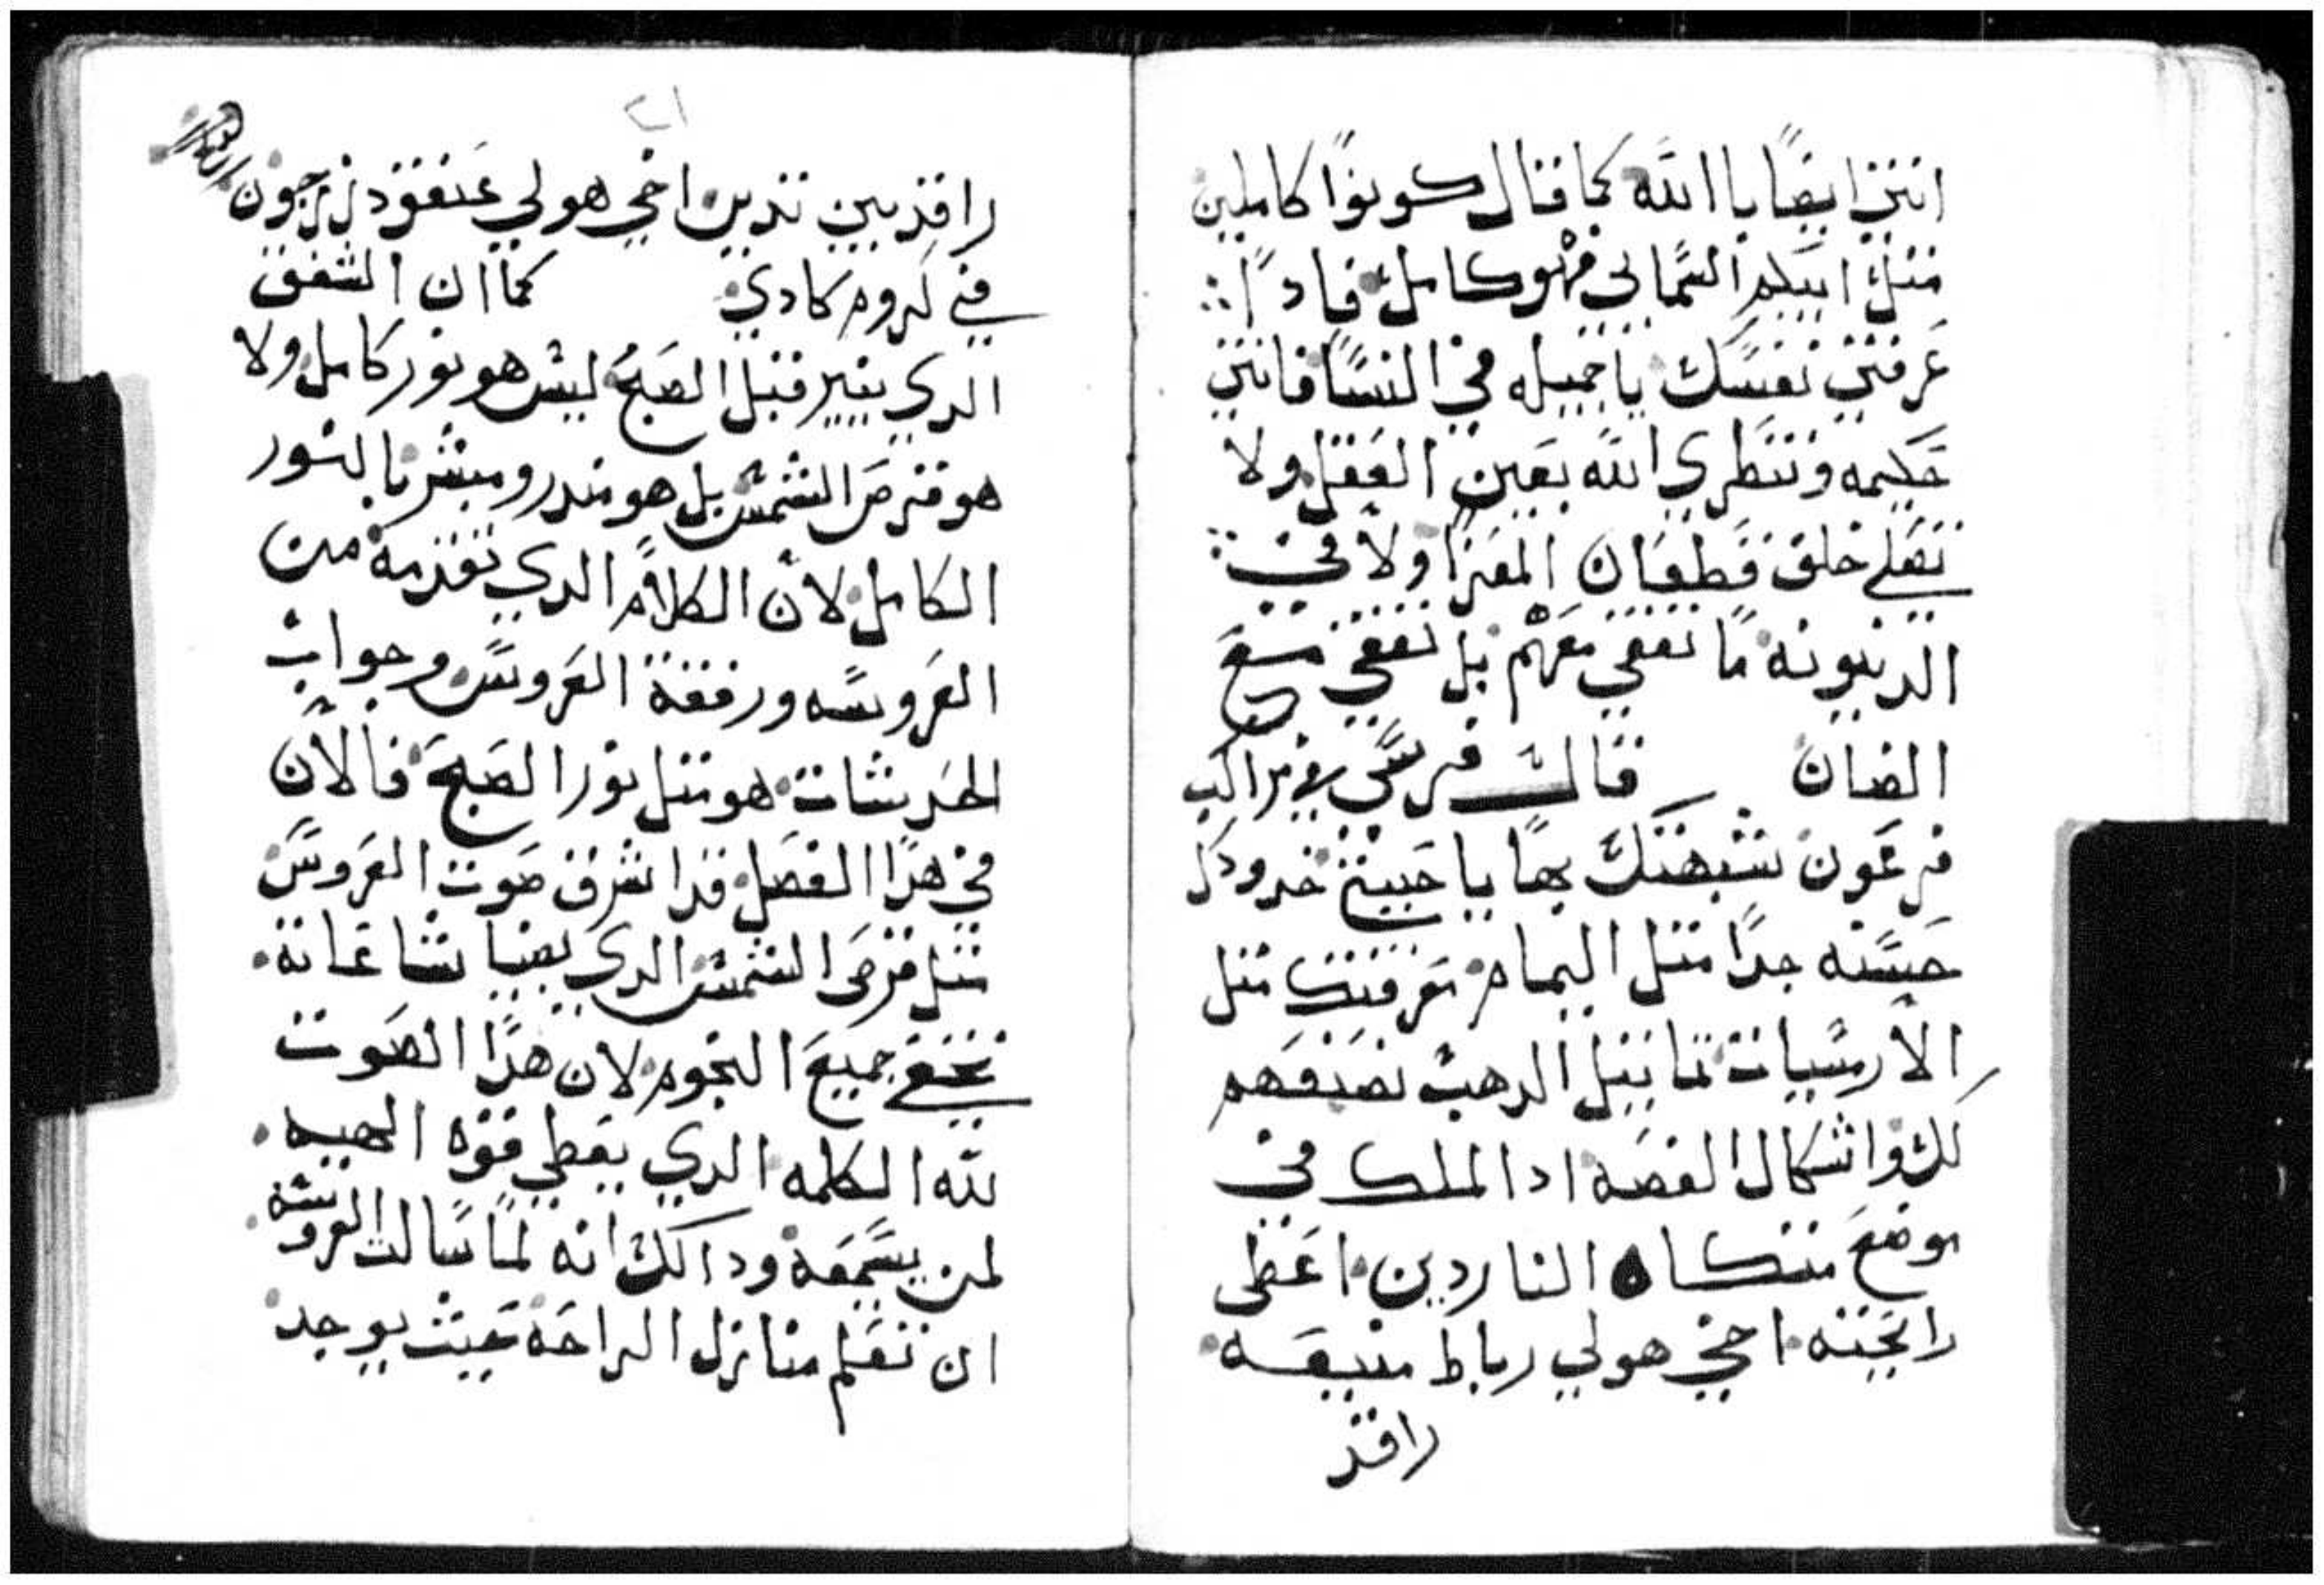 انتي ايضًا بالله كما قال كونوا كاملين
متل ابيكم السمايى فهو كامل فادا
عرفتي نفسك يا جميله في النسا فانتي
حكيمه وتنظري الله بعين العقل ولا
تقفي خلف قطعان المعزا ولا في
الدينونه ما تقفي معهم بل تقفي مع
الضان قالت فرسي في مراكب
فرعون شبهتك بها يا حبيبتي خدودك
حسنه جدًا متل اليمام معرفتك متل
الارمسيات تماتيل الدهب نصنعهم
لك واشكال الفضه ادا الملك في
موضع متكاه الناردين اعطى
رايحته اخي هو لي رباط ميعه
راقد
٢١
راقد بين تديى اخي هو لي عنقود زرجون
في كروم كادي كما ان الشفق
الدي ينير قبل الصبح ليس هو نور كامل ولا
هو قرص الشمس بل هو مندر ومبشر بالنور
الكامل لان الكلام الدي تقدمة من
العروسه ورفقة العروس وجواب
الحديثات هو متل نور الصبح فالان
في هدا الفصل قد اشرف صوت العروس
متل قرص الشمس الدي بضيا شاعاته
تختفي جميع النجوم لان هدا الصوت
لله الكلمه الدي يعطي قوه الهيه
لمن يسمعه وداك انه لما سالت العروسه
ان تعلم منازل الراحه حيث يوجد